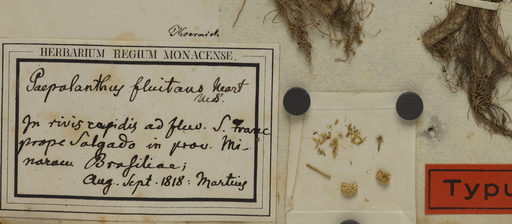 Thoernich
HERBARIUM REGIUM MONACENSE.
Paepalanthus fluitans Mart
In rivis rapidis ad fluv. S. Franc
prope Salgado in prov. Mi-
narum Brasiliae;
Aug. Sept. 1818: Martius
Typu